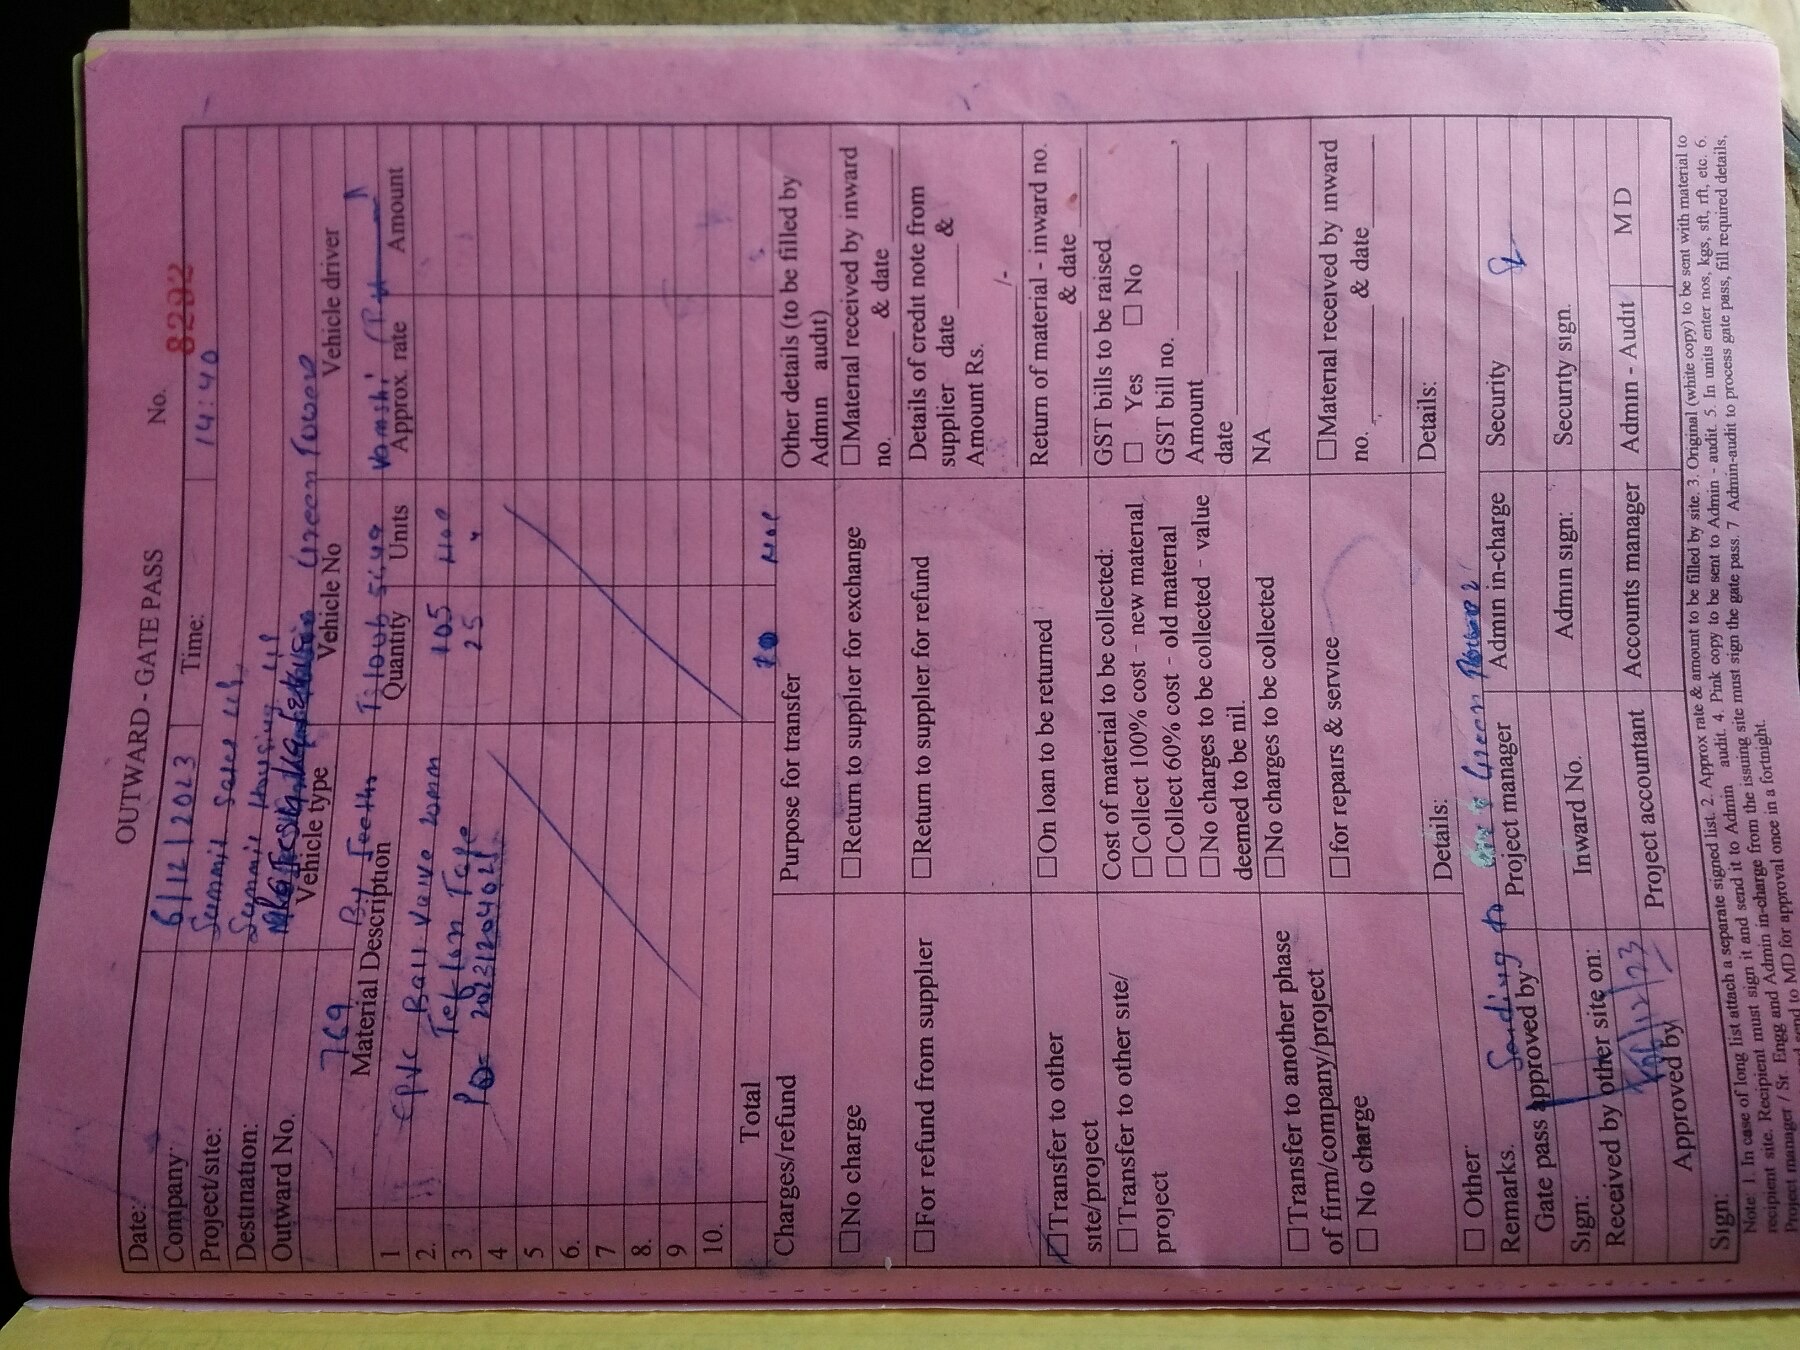 OUTWARD - GATE PASS No. 8292
Date: 6/12/2023 Time: 14:40
Company: Summit Sales LLP
Project/site: Summit Housing LLP
Destination: Green Tower
Outward No. Vehicle type Vehicle No Vehicle driver
769 By Vamshi
Material Description Quantity Units Approx. rate Amount
1 CPVC Ball Valve 20mm 105 Nos
2. Teflon Tape 25 "
3 PO- 20231204021
4
5
6.
7
8.
9
10.
Total Nos
Charges/refund Purpose for transfer Other details (to be filled by Admin audit)
☐No charge ☐Return to supplier for exchange ☐Material received by inward
no. ______ & date ______
☐For refund from supplier ☐Return to supplier for refund Details of credit note from
supplier date ______ &
Amount Rs. ______/-
☐Transfer to other site/project ☐On loan to be returned Return of material - inward no.
______ & date ______
☐Transfer to other site/project Cost of material to be collected: GST bills to be raised
☐Collect 100% cost - new material ☐ Yes ☐ No
☐Collect 60% cost - old material GST bill no. ______,
☐No charges to be collected - value Amount ______
deemed to be nil. date ______
☐Transfer to another phase of firm/company/project ☐No charges to be collected NA
☐ No charge ☐for repairs & service ☐Material received by inward
no. ______ & date ______
☐ Other: Details: Details:
Remarks. Sending to Green Tower
Gate pass approved by Project manager Admin in-charge Security
Sign:
Received by other site on: Inward No. Admin sign: Security sign.
Approved by Project accountant Accounts manager Admin - Audit M D
Sign:
Note: 1. In case of long list attach a separate signed list. 2. Approx rate & amount to be filled by site. 3. Original (white copy) to be sent with material to
recipient site. Recipient must sign it and send it to Admin audit. 4. Pink copy to be sent to Admin - audit. 5. In units enter nos, kgs, sft, rft, etc. 6.
Project manager / Sr. Engg and Admin in-charge from the issuing site must sign the gate pass. 7 Admin-audit to process gate pass, fill required details,
and send to MD for approval once in a fortnight.